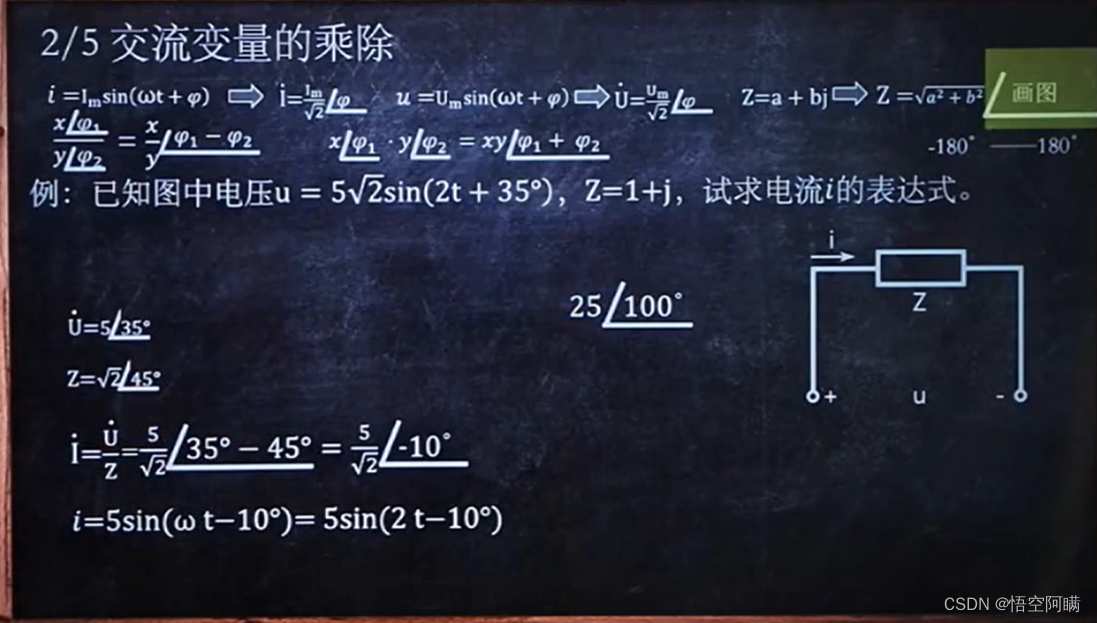 2/5 交流变量的乘除
i =Iₘsin(ωt + φ) ⇨ İ=Iₘ/√2∠φ u =Uₘsin(ωt + φ) ⇨ U̇=Uₘ/√2∠φ Z=a + bj ⇨ Z =√(a² + b²)∠画图
x∠φ₁/y∠φ₂ = x/y∠φ₁ − φ₂ x∠φ₁ · y∠φ₂ = xy∠φ₁ + φ₂ -180° ——180°
例：已知图中电压u = 5√2sin(2t + 35°)，Z=1+j，试求电流i的表达式。
i
Z
25∠100°
U̇=5∠35°
Z=√2∠45°
+ u -
İ=U̇/Z=5/√2∠35° − 45° = 5/√2∠-10°
i=5sin(ω t−10°)= 5sin(2 t−10°)
CSDN @悟空阿瞒